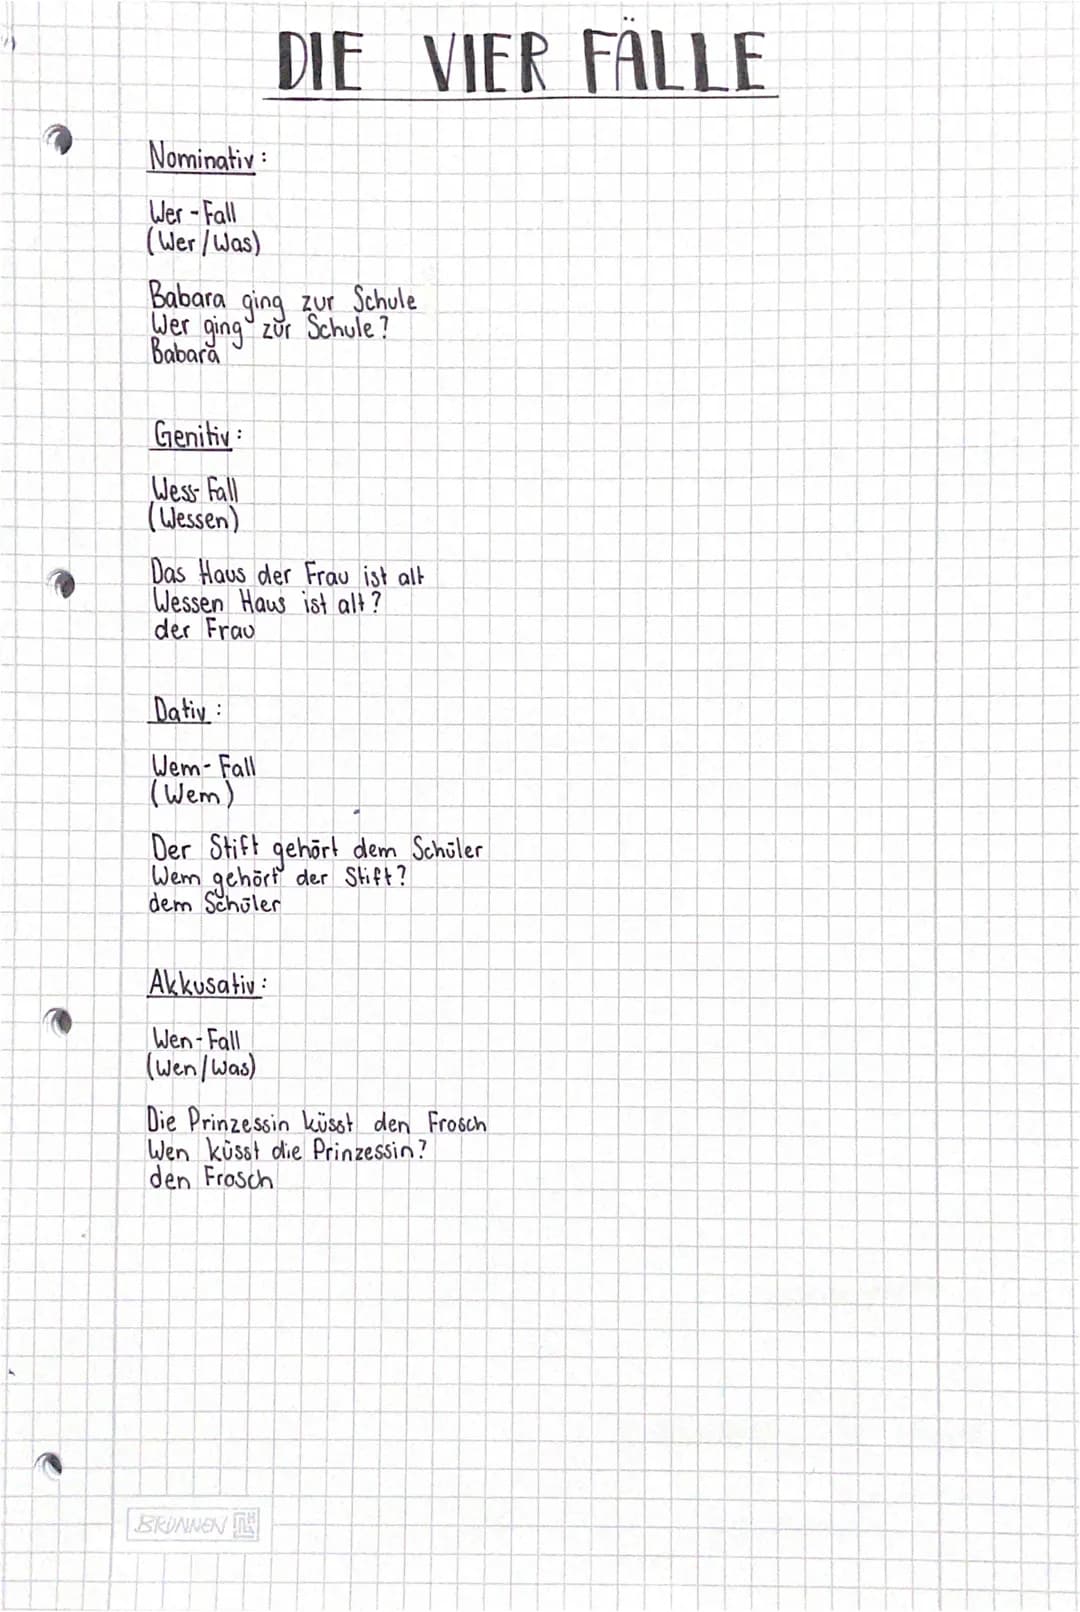 DIE VIER FÄLLE
Nominativ:
Wer-Fall
(Wer/Was)
Babara ging zur Schule
Wer ging zur Schule?
Babara
Genitiv:
Wess-Fall
(Wessen)
Das Haus der Frau ist alt
Wessen Haus ist alt?
der Frau
Dativ:
Wem-Fall
(Wem)
Der Stift gehört dem Schüler
Wem gehört der Stift?
dem Schüler
Akkusativ:
Wen-Fall
(Wen/Was)
Die Prinzessin küsst den Frosch
Wen küsst die Prinzessin?
den Frosch
BRUNNEN